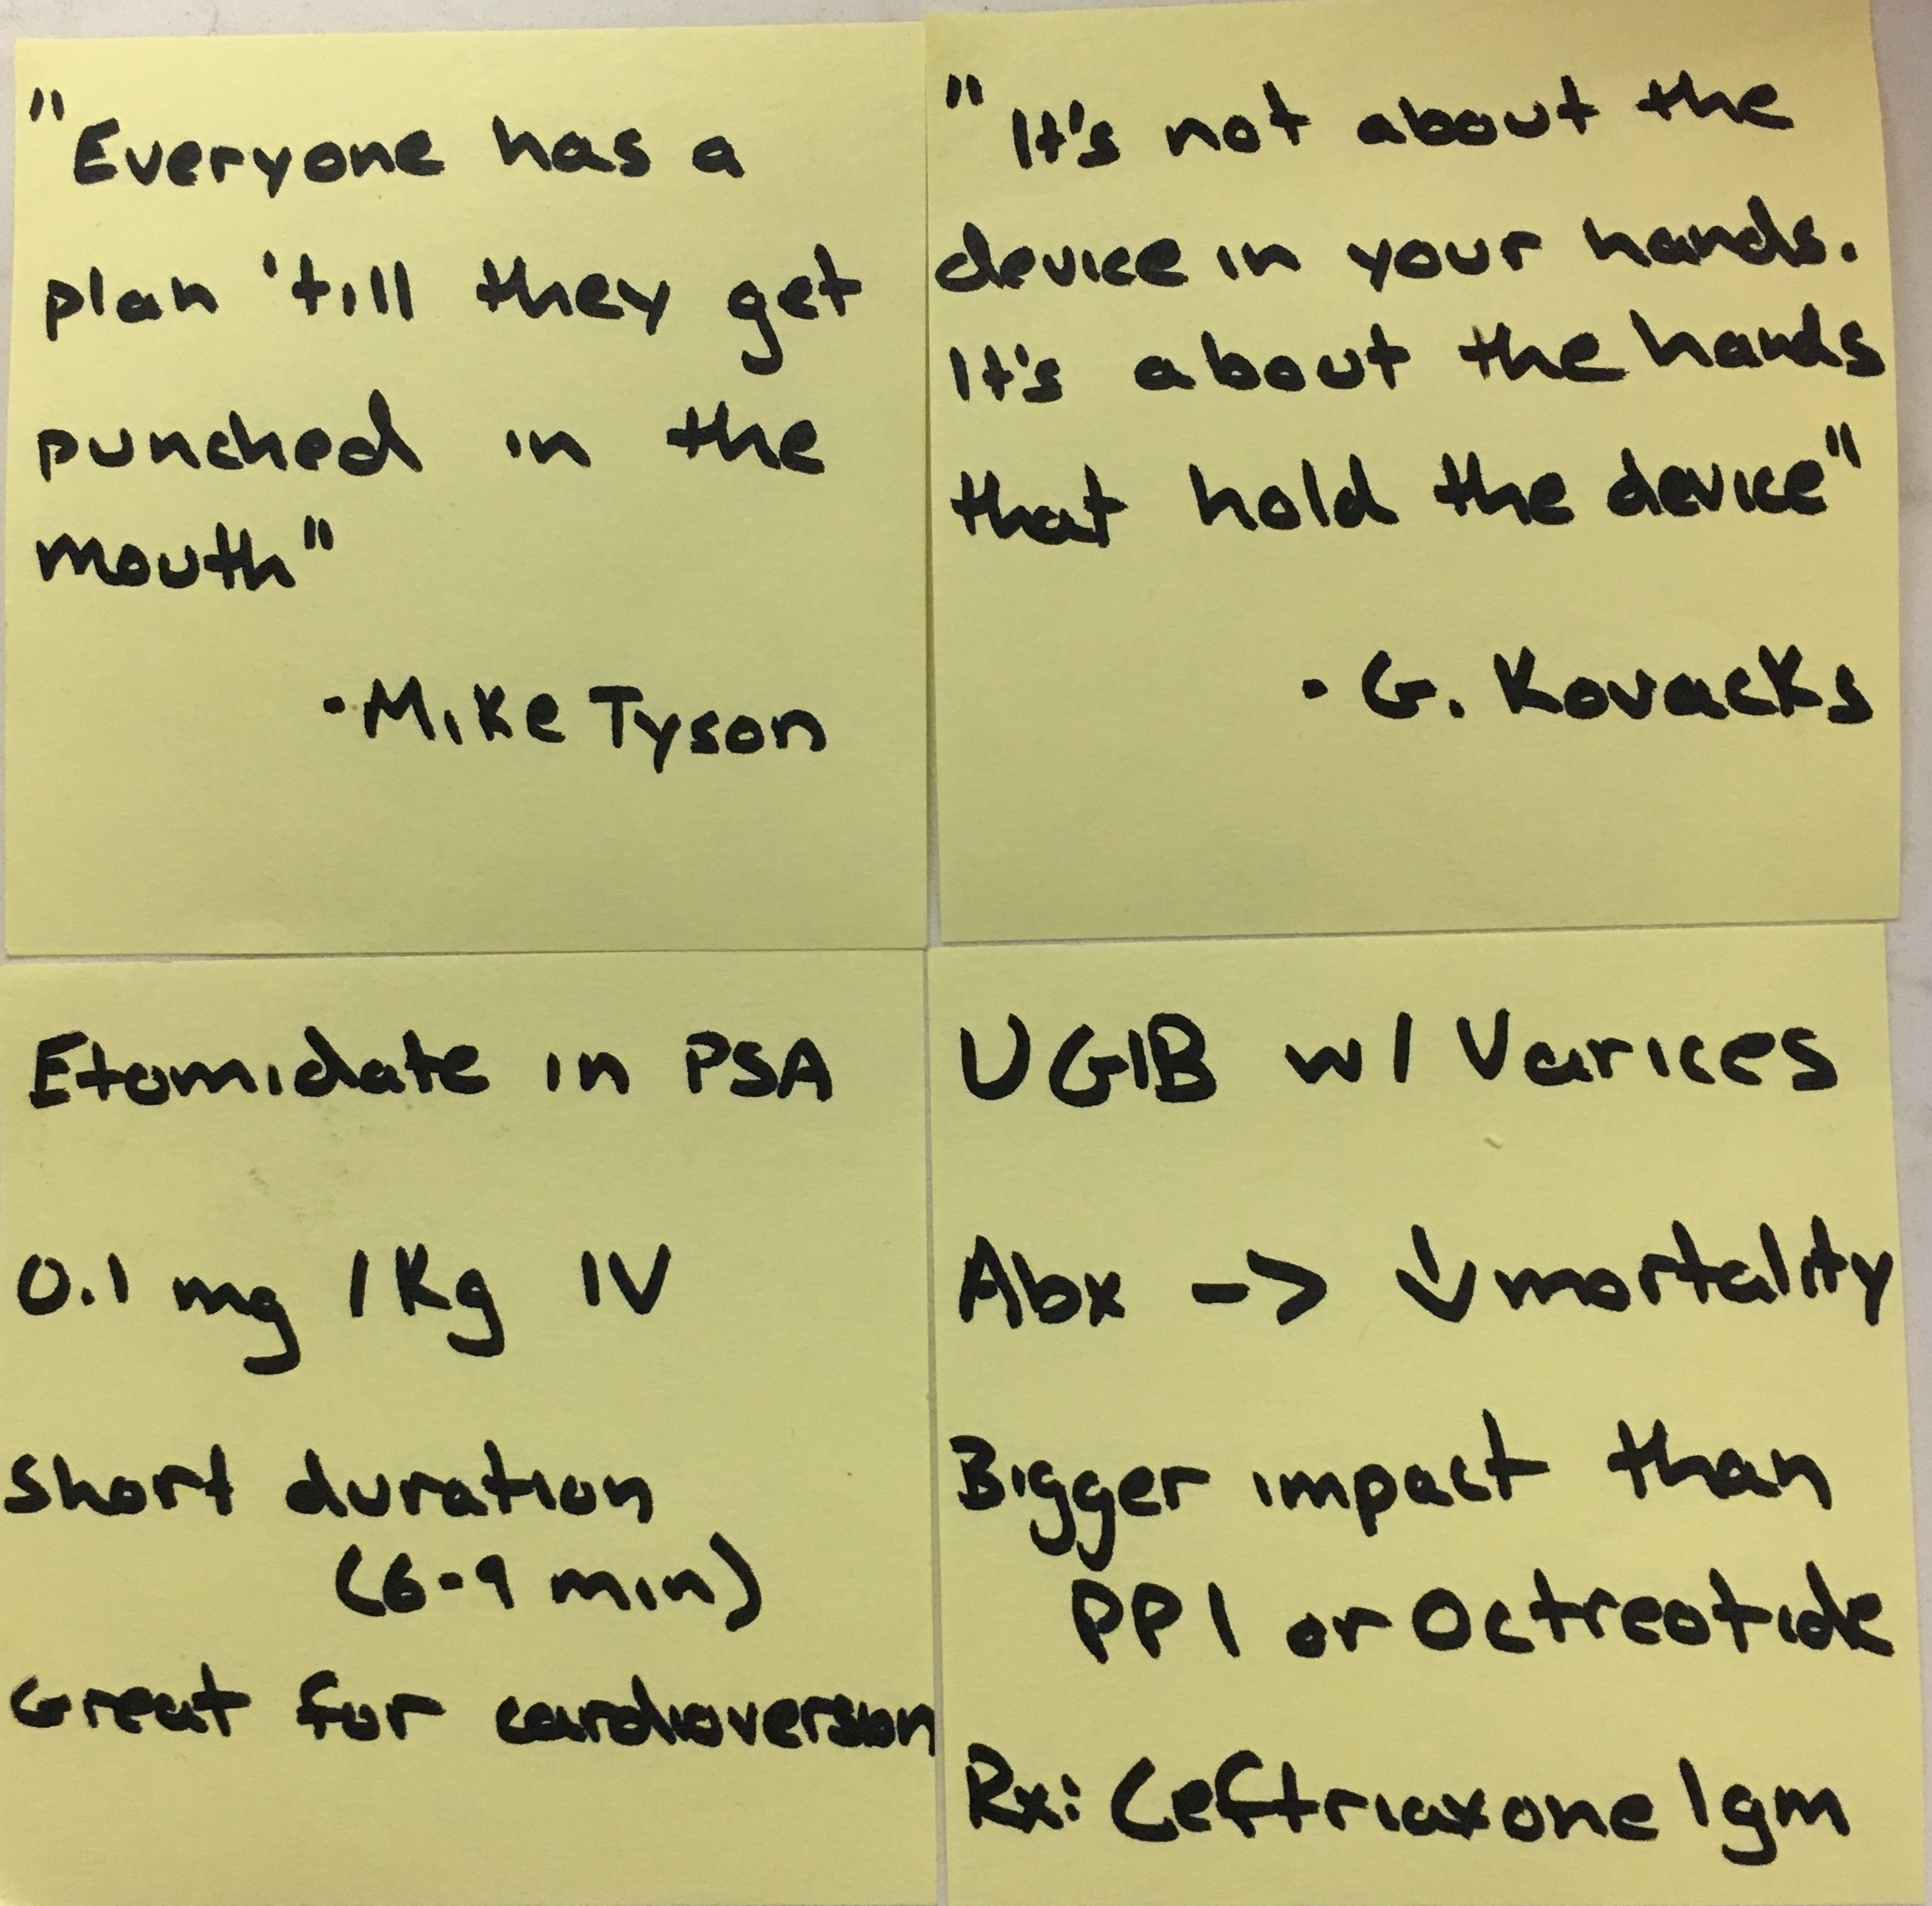 "Everyone has a
plan 'till they get
punched in the
mouth"
·Mike Tyson
"It's not about the
device in your hands.
It's about the hands
that hold the device"
· G. Kovacks
Etomidate in PSA
0.1 mg /Kg IV
Short duration
(6-9 min)
Great for cardioversion
UGIB w/ Varices
Abx -> ↓mortality
Bigger impact than
PPI or Octreotide
Rx: Ceftriaxone 1gm